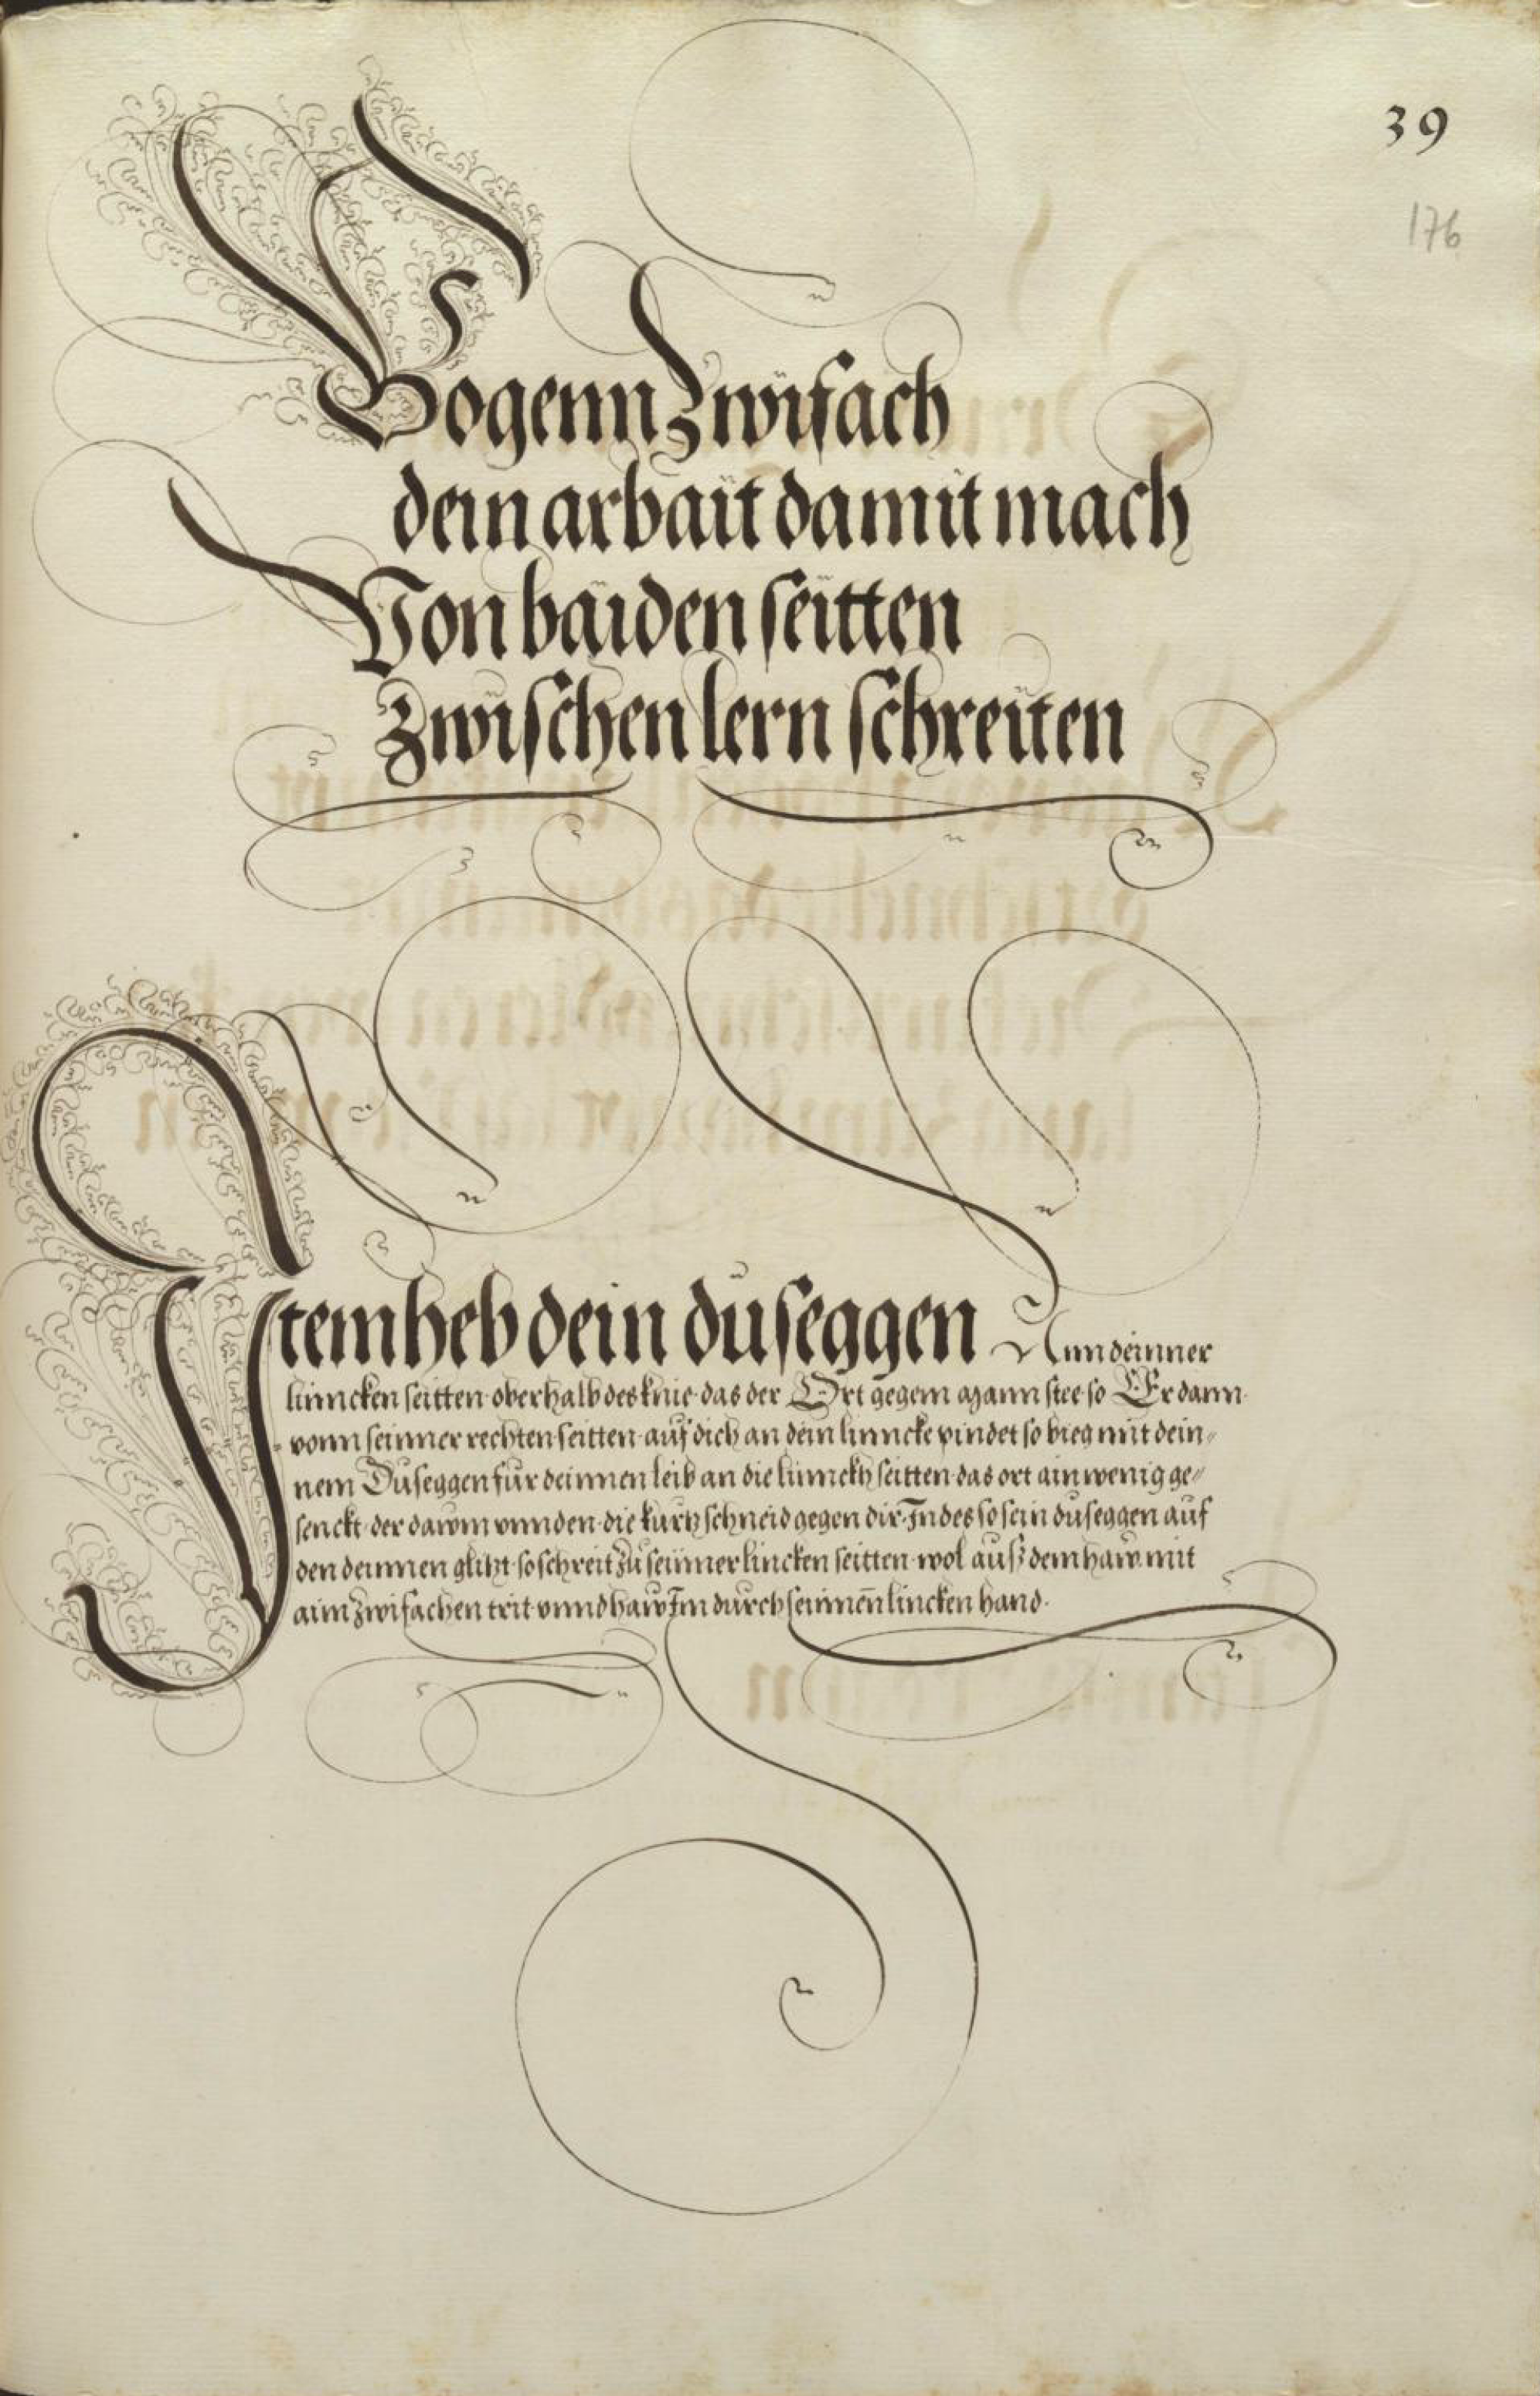 39
176
Bogenn Zwifach
dein arbait damit mach
Von baiden seitten
Zwischen lern schreiten
Item heb dein duseggen Ann deinner
linncken seitten oberhalb des knie das der Ort gegem Mann stee so Er dann
vonn seinner rechten seitten auf dich an dein linncke windet so bieg mit dein⸗
nem Duseggen fur deinnen leib an die linnckh seitten das ort ain wenig ge⸗
senckt der dawm unnden die kurtz schneid gegen dir Indes so sein duseggen auf
den deinnen glitzt so schreit Zu seinner lincken seitten wol auß dem haw mit
aim Zwifachen trit unnd haw Im durch seinnen̄ lincken hand